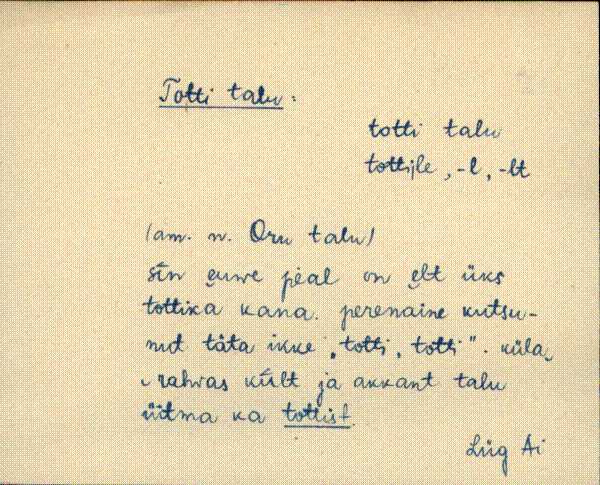 Totti talu:
totti talu
tottijle, -l, -lt
(am. n. Oru talu)
sīn ęuwe pēal on ęlt üks
tottika kana. perenaine kutsu-
nud täta ikke "totti, totti". küla
rahvas küilt ja akkant talu
üitma ka tottist.
Lüg Ai